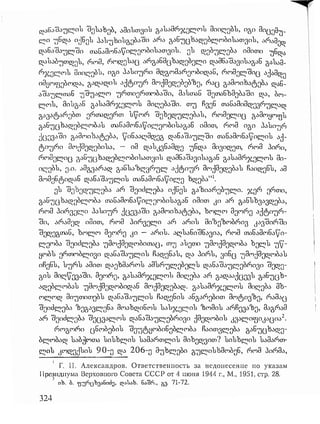 დანაშაულის შესახებ, ამისთვის გასამრჯელოს მიიღებს, იგი მიცემუ-
ლი უნდა იქნეს პასუხისგებაში არა განუცხადებლობისათვის, არამედ
დანაშაულში თანამონაწილეობისათვის. ეს დებულება იმითი უნდა
დასაბუთდეს, რომ, როდესაც არგანმცხადებელი დამნაშავისაგან გასამ-
რჯელოს მიიღებს, იგი პასიური მდგომარეობიდან, რომელშიც აქამდე
იმყოფებოდა, გადადის აქტიურ მოქმედებებზე, რაც გამოიხატება დან-
აშაულთან უშუალო ურთიერთობაში, მასთან შეთანხმებაში და, ბო-
ლოს, მისგან გასამრჯელოს მიღებაში. თუ ჩვენ თანამიმდევრულად
გავატარებთ ერთადერთ სწორ შეხედულებას, რომელიც გამოყოფს
განუცხადებლობას თანამონაწილეობისაგან იმით, რომ იგი პასიურ
ქცევაში გამოიხატება, წინააღმდეგ დანაშაულში თანამონაწილის აქ-
ტიური მოქმედებისა, — იმ დასკვნამდე უნდა მივიდეთ, რომ პირი,
რომელიც განუცხადებლობისათვის დამნაშავისაგან გასამრჯელოს მი-
იღებს, ე.ი. ამგვარად განსაზღვრულ აქტიურ მოქმედებას ჩაიდენს, ამ
მომენტიდან დანაშაულის თანამონაწილე ხდება“¹.
ეს შეხედულება არ შეიძლება იქნეს გაზიარებული. ჯერ ერთი,
განუცხადებლობა თანამონაწილეობისაგან იმით კი არ განსხვავდება,
რომ პირველი პასიურ ქცევაში გამოიხატება, ხოლო მეორე აქტიურ-
ში, არამედ იმით, რომ პირველი არ არის მიზეზობრივ კავშირში
შედეგთან, ხოლო მეორე კი — არის. აღსანიშნავია, რომ თანამონაწი-
ლეობა შეიძლება უმოქმედობითაც, თუ ასეთი უმოქმედობა ხელს უწ-
ყობს ერთობლივი დანაშაულის ჩადენას, და პირს, ვინც უმოქმედობას
იჩენს, სურს ამით დაეხმაროს ამსრულებელს დანაშაულებრივი შედე-
გის მიღწევაში. მეორე, გასამრჯელოს მიღება არ გადააქცევს განუცხ-
ადებლობას უმოქმედობიდან მოქმედებად. გასამრჯელოს მიღება მხ-
ოლოდ მიუთითებს დანაშაულის ჩადენის ანგარებით მოტივზე, რამაც
შეიძლება ზეგავლენა მოახდინოს სასჯელის ზომის არჩევაზე, მაგრამ
არ შეიძლება შეცვალოს დანაშაულებრივი ქმედობის კვალიფიკაცია².
როგორი ცნობების შეუტყობინებლობა ჩაითვლება განუცხადე-
ბლობად საბჭოთა სისხლის სამართლის მიხედვით? სისხლის სამართ-
ლის კოდექსის 90-ე და 206-ე მუხლები გულისხმობენ, რომ პირმა,
¹ Г. П. Александров. Ответственность за недонесение по указам
Президиума Верховного Совета СССР от 4 июня 1944 г., М., 1951, стр. 28.
² იხ. ბ. ფურცხვანიძე, დასახ. ნაშრ., გვ. 71-72.
324